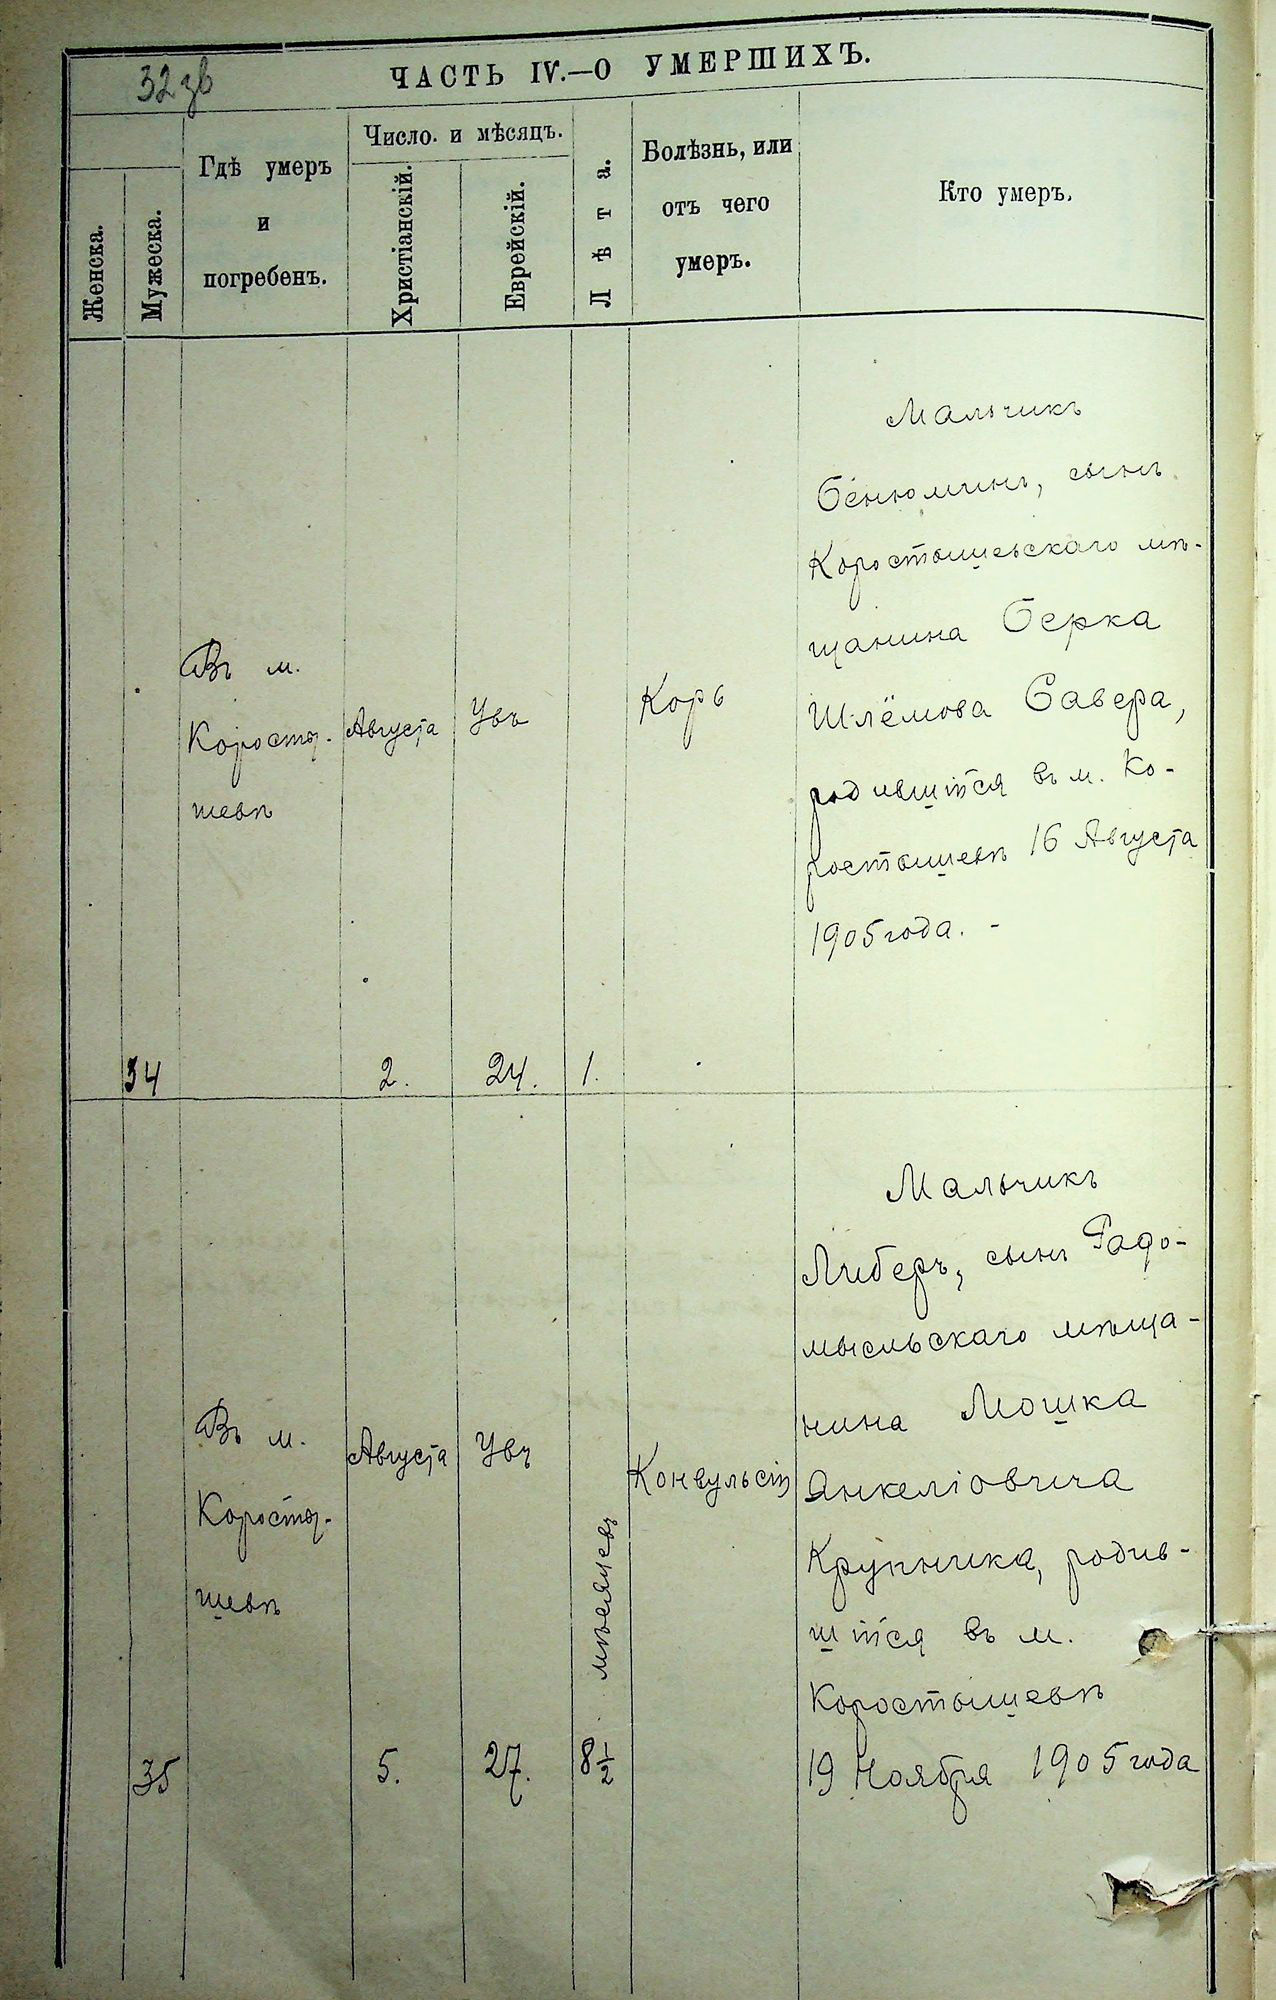 32зв
ЧАСТЬ IV.—О УМЕРШИХЪ.
Женска.
Мужеска.
Гдѣ умеръ
и
погребенъ.
Число. и мѣсяцъ.
Христіанскій.
Еврейскій.
Лѣта.
Болѣзнь, или
отъ чего
умеръ.
Кто умеръ.
34
Въ м.
Косты-
шевѣ
Августа
2.
Увъ
24.
1.
Корь
Мальчикъ
Бенюминъ, сынъ
Коростышевскаго мѣ-
щанина Берка
Шлёмова Савера,
родившійся въ м. Ко-
ростышевѣ 16 Августа
1905 года. -
35
Въ м.
Коросты-
шевѣ
Августа
5.
Увъ
27.
8 1/2 мѣсяцевъ
Конвульсія
Мальчикъ
Либеръ, сынъ Радо-
мысльскаго мѣща-
нина Мошка
Янкеліовича
Крупника, родив-
шійся въ м.
Коростышевѣ
19 Ноября 1905 года